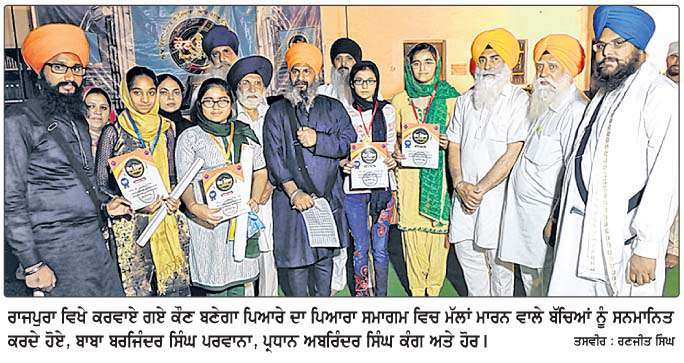 ਰਾਜਪੁਰਾ ਵਿਖੇ ਕਰਵਾਏ ਗਏ ਕੌਣ ਬਣੇਗਾ ਪਿਆਰੇ ਦਾ ਪਿਆਰਾ ਸਮਾਗਮ ਵਿਚ ਮੱਲਾਂ ਮਾਰਨ ਵਾਲੇ ਬੱਚਿਆਂ ਨੂੰ ਸਨਮਾਨਿਤ
ਕਰਦੇ ਹੋਏ, ਬਾਬਾ ਬਰਜਿੰਦਰ ਸਿੰਘ ਪਰਵਾਨਾ, ਪ੍ਰਧਾਨ ਅਬਰਿੰਦਰ ਸਿੰਘ ਕੰਗ ਅਤੇ ਹੋਰ।
ਤਸਵੀਰ : ਰਣਜੀਤ ਸਿੰਘ